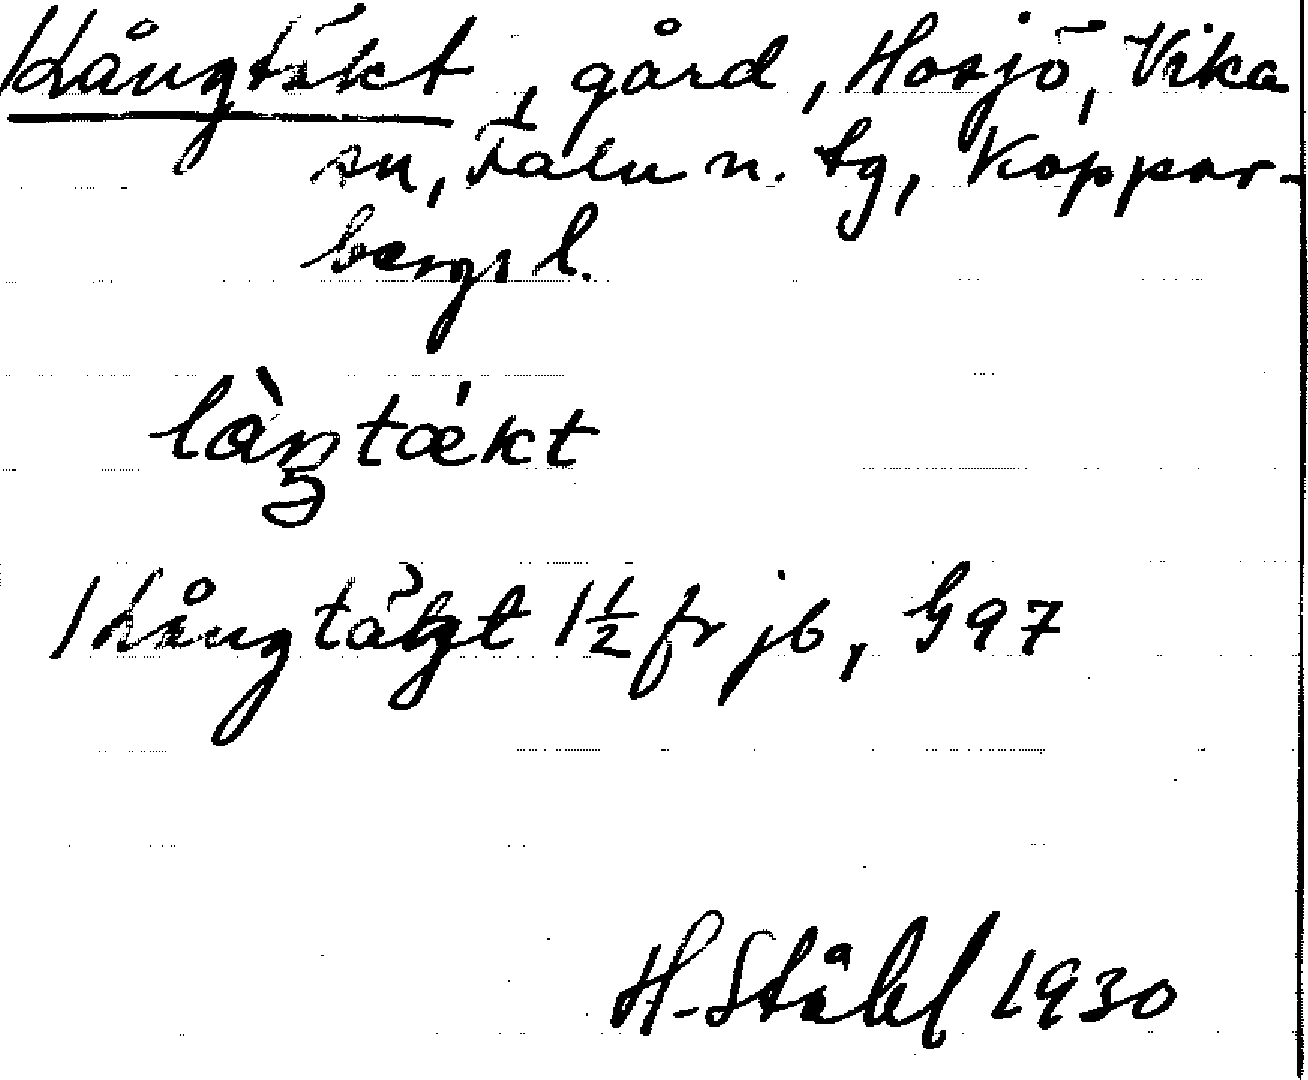 Långtäkt, gård, Hosjö, Vika
sn, Falu n. tg, Koppar-
bergs l.
làŋtǽkt
Långtäkt 1½ fr jb, G97
H. Ståhl 1930